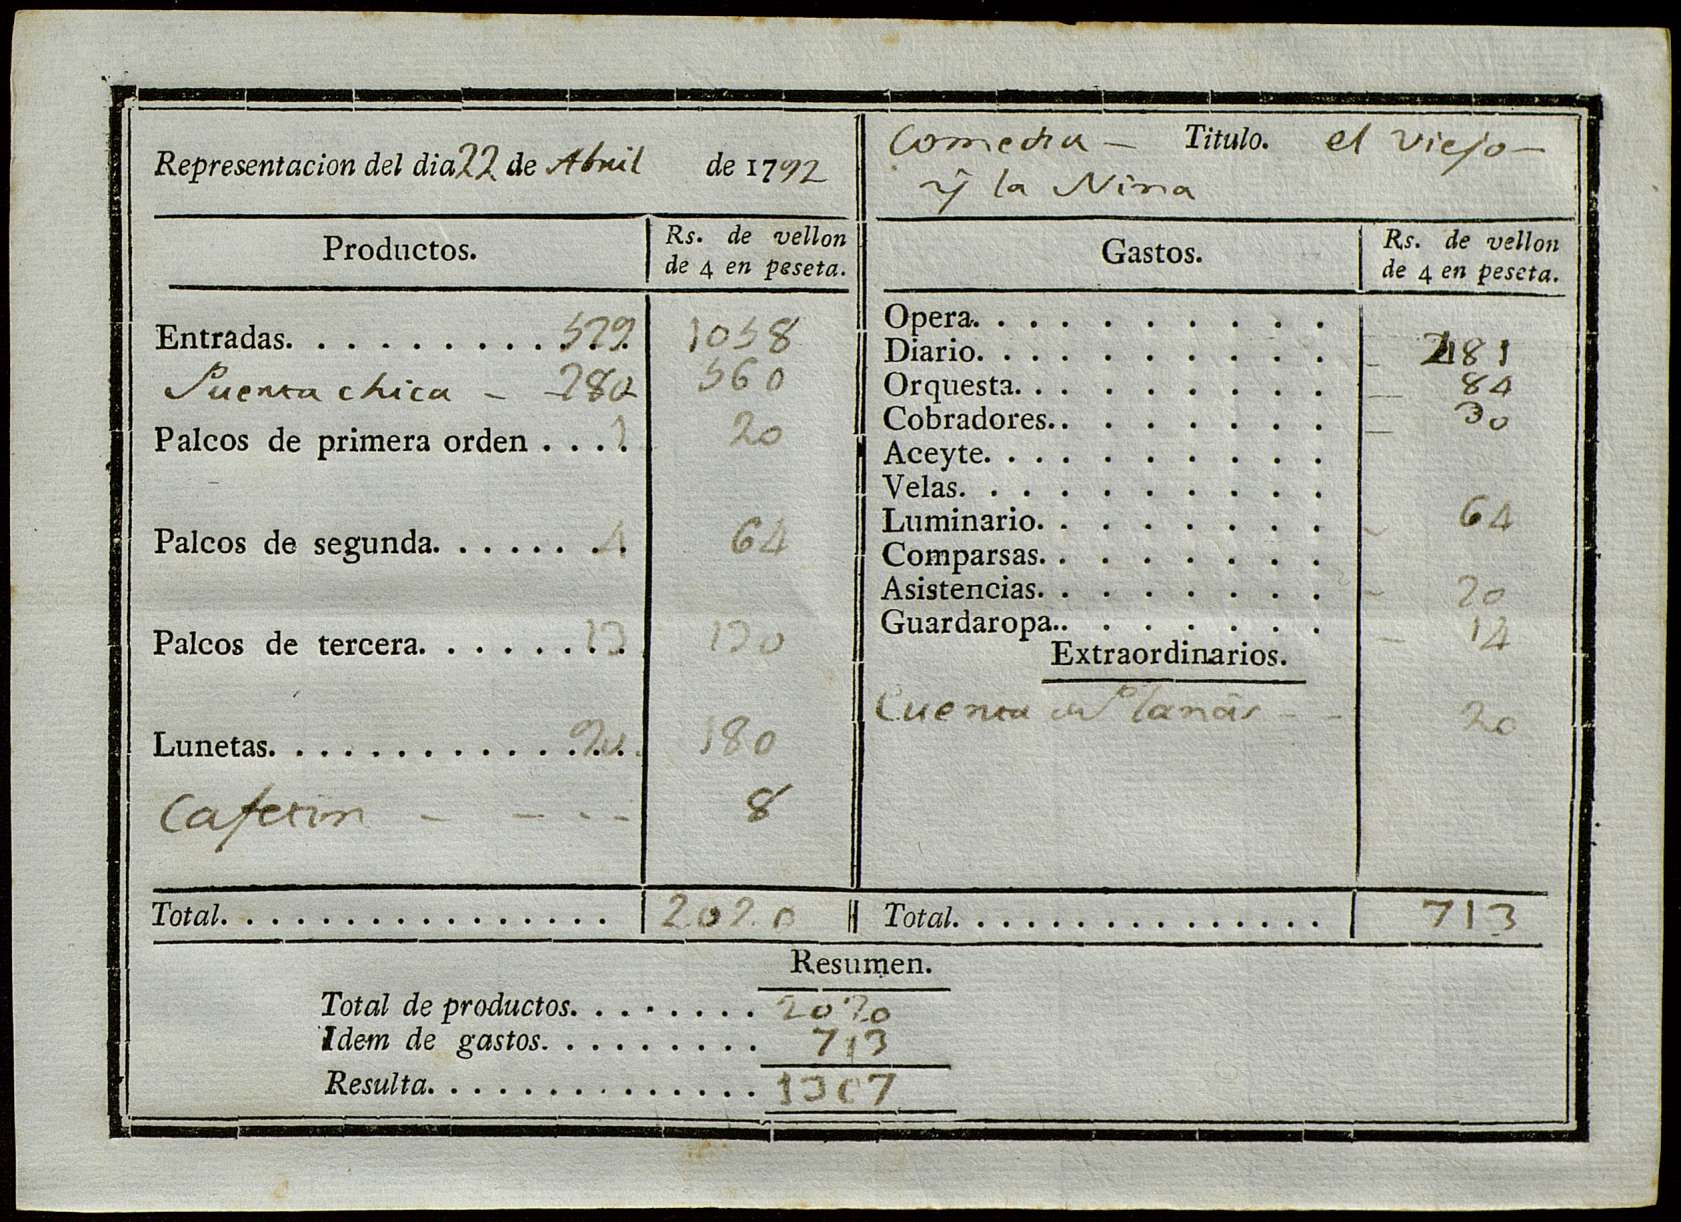 Representacion del dia 22 de Abril de 1792
Comedia — Titulo. el Viejo —
y la Nina
Productos. Rs. de vellon de 4 en peseta.
Entradas. . . . . . . . . . . . 529 1058
Puerta chica - 280 560
Palcos de primera orden . . . 1 20
Palcos de segunda. . . . . . . 4 64
Palcos de tercera. . . . . . . 13 130
Lunetas. . . . . . . . . . . . 90 180
Cafetin - - - - 8
Total. . . . . . . . . . . . . . . . 2020
Gastos. Rs. de vellon de 4 en peseta.
Opera. . . . . . . . . .
Diario. . . . . . . . . . - 481
Orquesta. . . . . . . . . - 84
Cobradores. . . . . . . . - 30
Aceyte. . . . . . . . . .
Velas. . . . . . . . . .
Luminario. . . . . . . . - 64
Comparsas. . . . . . . .
Asistencias. . . . . . . . - 20
Guardaropa. . . . . . . . - 14
Extraordinarios.
Cuenta de Planas - - 20
Total. . . . . . . . . . . . . . . 713
Resumen.
Total de productos. . . . . . . . 2020
Idem de gastos. . . . . . . . . 713
Resulta. . . . . . . . . . . . . . 1307